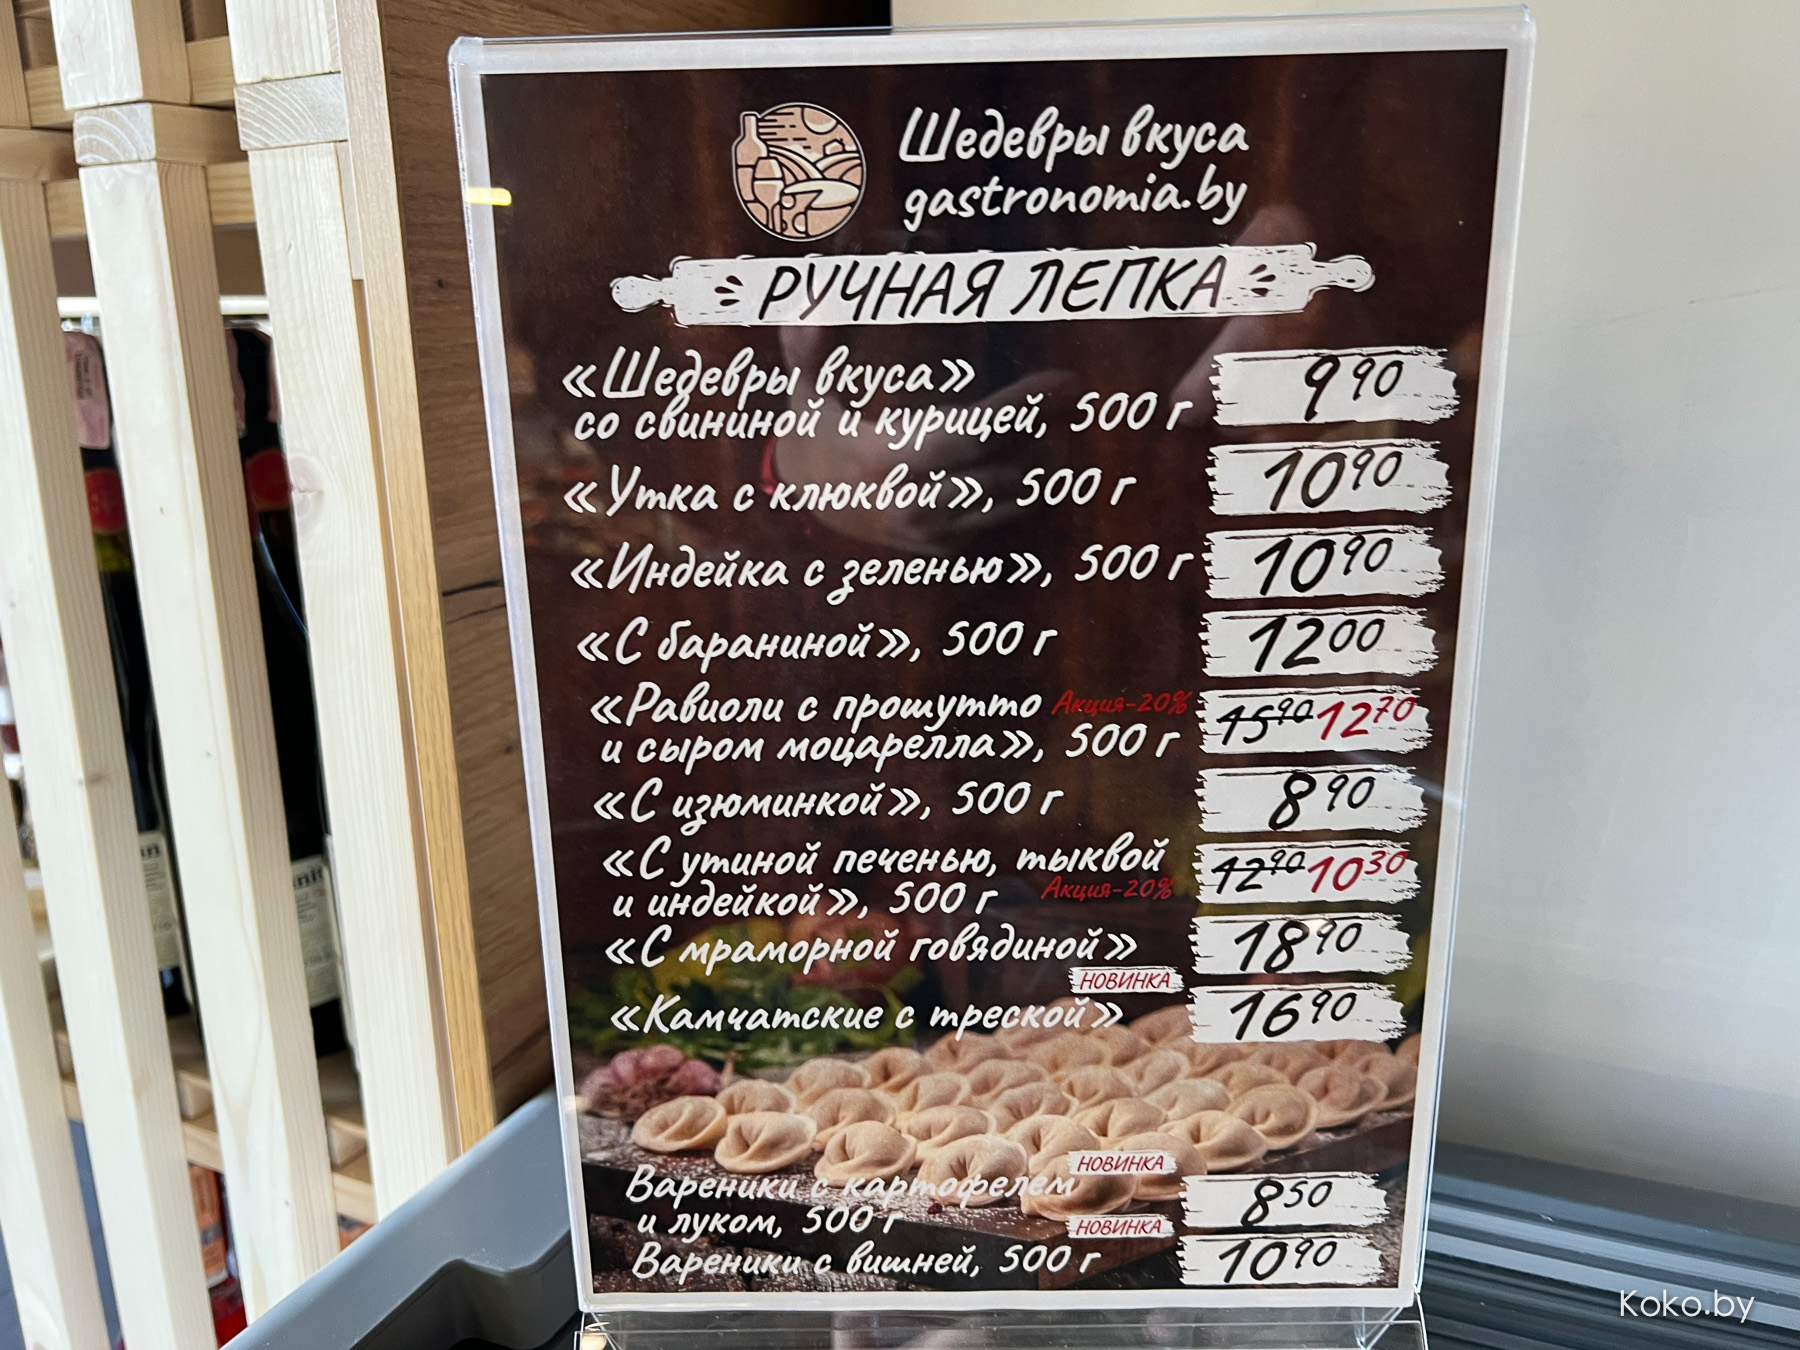 Шедевры вкуса
gastronomia.by
РУЧНАЯ ЛЕПКА
«Шедевры вкуса»
со свининой и курицей, 500 г 9 90
«Утка с клюквой», 500 г 10 90
«Индейка с зеленью», 500 г 10 90
«С бараниной», 500 г 12 00
«Равиоли с прошутто Акция-20%
и сыром моцарелла», 500 г 15 90 12 70
«С изюминкой», 500 г 8 90
«С утиной печенью, тыквой
и индейкой», 500 г Акция-20% 12 90 10 30
«С мраморной говядиной» 18 90
НОВИНКА
«Камчатские с треской» 16 90
НОВИНКА
Вареники с картофелем
и луком, 500 г 8 50
НОВИНКА
Вареники с вишней, 500 г 10 90
Koko.by